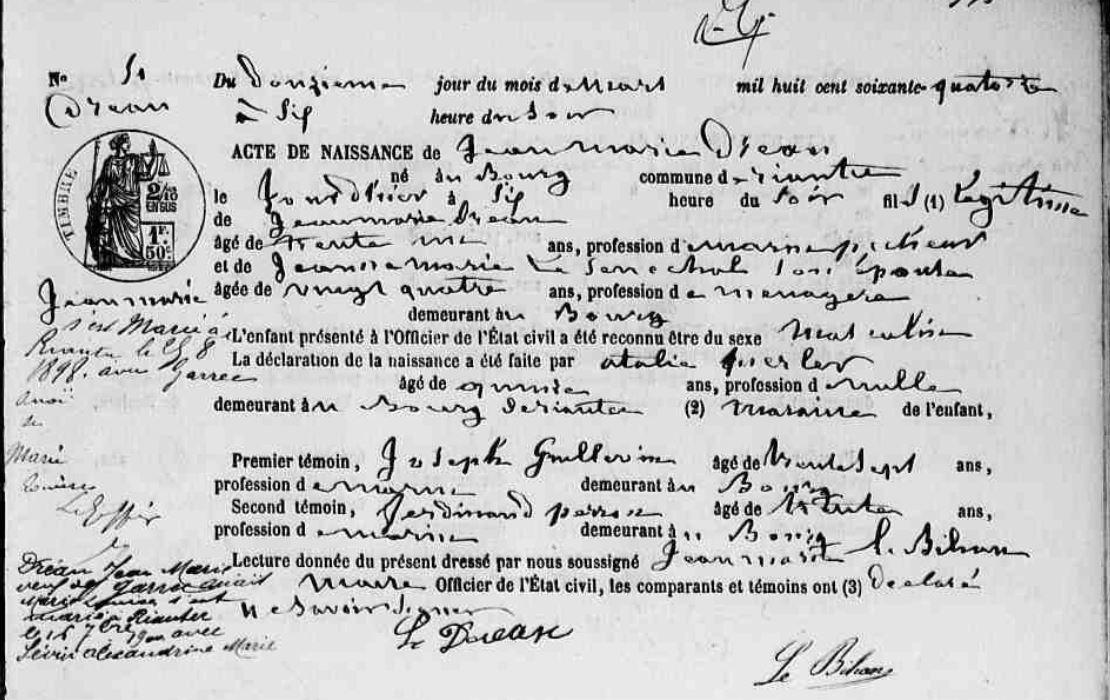 No 51 Du Douzieme jour du mois de Mars mil huit cent soixante-quatorze
Drean à Six heure du Soir
TIMBRE
2/10 EN SUS
1F. 50c.
ACTE DE NAISSANCE de Jean marie Drean
né au Bourg commune de riantec
le à Six heure du Soir fils (1) Légitime
de Jean marie Drean
âgé de trente ans, profession de marin pecheur
et de Jeanne marie Le Senechal Son Épouse
âgée de vingt quatre ans, profession de menagere
demeurant au Bourg
L'enfant présenté à l'Officier de l'État civil a été reconnu être du sexe Masculin
La déclaration de la naissance a été faite par
âgé de quinze ans, profession de nulle
demeurant au Bourg de riantec (2) maraine de l'enfant,
Premier témoin, Joseph Guillevin âgé de trente sept ans,
profession de marin demeurant au Bourg
Second témoin, Ferdinand perron âgé de trente ans,
profession de marin demeurant au Bourg
Lecture donnée du présent dressé par nous soussigné Jean marie le Bihan
Maire Officier de l'État civil, les comparants et témoins ont (3) Declaré
ne Savoir Signer
Le Bihan
Jean marie
s'est Marié à
Riantec le 8
1898. avec Garrec
Marie
Louise
Dréan Jean Marie
veuf de Garrec
Marie Louise s'est
marié à Riantec
le 16 7bre avec
Sévin Alexandrine Marie